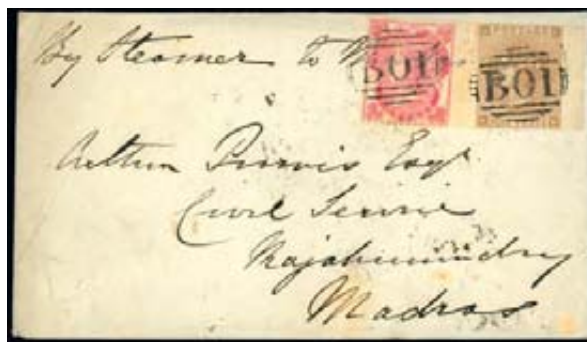 By Steamer to
B01 B01
POSTAGE
Arthur Purvis Esqr
Civil Service
Rajahmundry
Madras